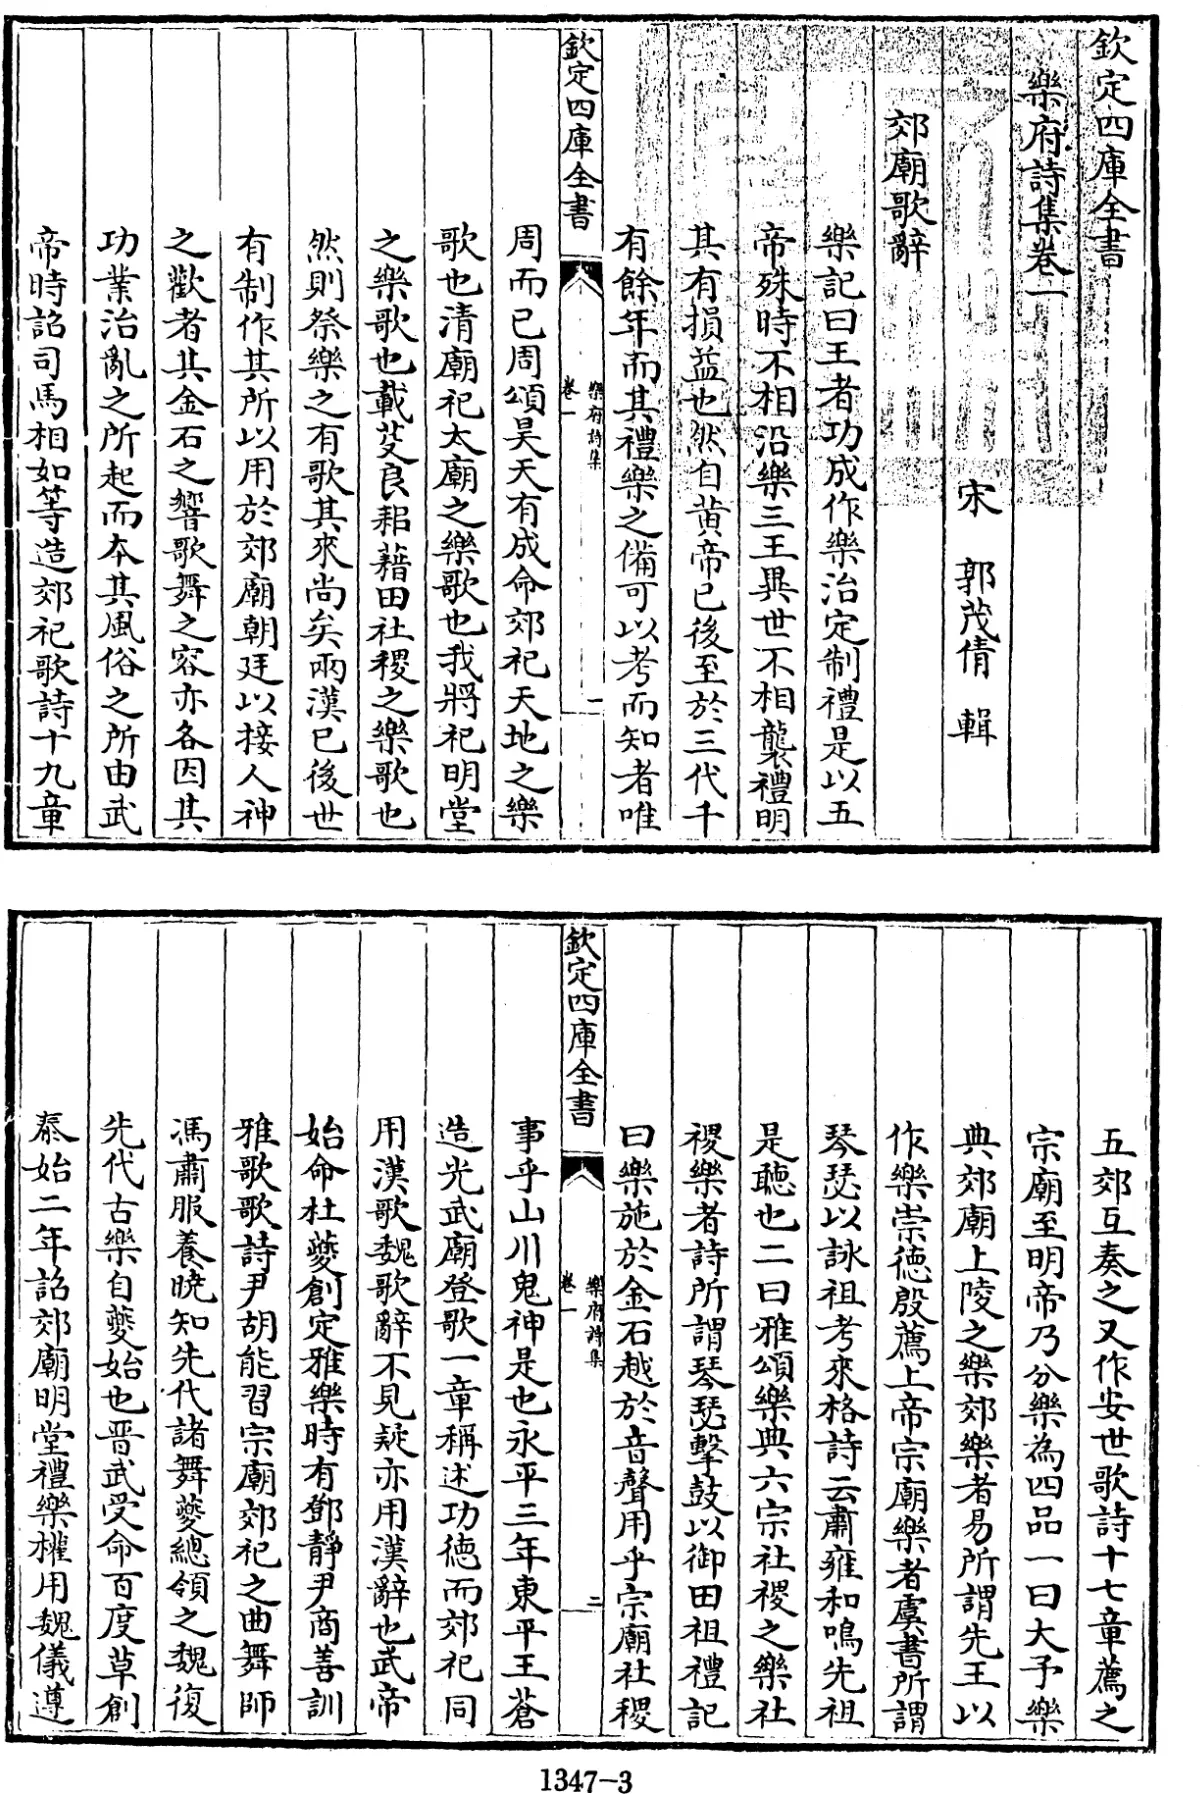 欽定四庫全書
樂府詩集卷一
宋 郭茂倩 輯
郊廟歌辭
樂記曰王者功成作樂治定制禮是以五
帝殊時不相沿樂三王異世不相襲禮明
其有損益也然自黄帝已後至於三代千
有餘年而其禮樂之備可以考而知者唯
欽定四庫全書
樂府詩集
卷一
一
周而已周頌昊天有成命郊祀天地之樂
歌也清廟祀太廟之樂歌也我將祀明堂
之樂歌也載芟良耜藉田社稷之樂歌也
然則祭樂之有歌其來尚矣兩漢已後世
有制作其所以用於郊廟朝廷以接人神
之歡者其金石之響歌舞之容亦各因其
功業治亂之所起而本其風俗之所由武
帝時詔司馬相如等造郊祀歌詩十九章
五郊互奏之又作安世歌詩十七章薦之
宗廟至明帝乃分樂為四品一曰大予樂
典郊廟上陵之樂郊樂者易所謂先王以
作樂崇德殷薦上帝宗廟樂者虞書所謂
琴瑟以詠祖考來格詩云肅雍和鳴先祖
是聽也二曰雅頌樂典六宗社稷之樂社
稷樂者詩所謂琴瑟擊鼓以御田祖禮記
曰樂施於金石越於音聲用乎宗廟社稷
欽定四庫全書
樂府詩集
卷一
二
事乎山川鬼神是也永平三年東平王蒼
造光武廟登歌一章稱述功德而郊祀同
用漢歌魏歌辭不見疑亦用漢辭也武帝
始命杜夔創定雅樂時有鄧靜尹商善訓
雅歌歌詩尹胡能習宗廟郊祀之曲舞師
馮肅服養曉知先代諸舞夔總領之魏復
先代古樂自夔始也晋武受命百度草創
泰始二年詔郊廟明堂禮樂權用魏儀遵
1347-3